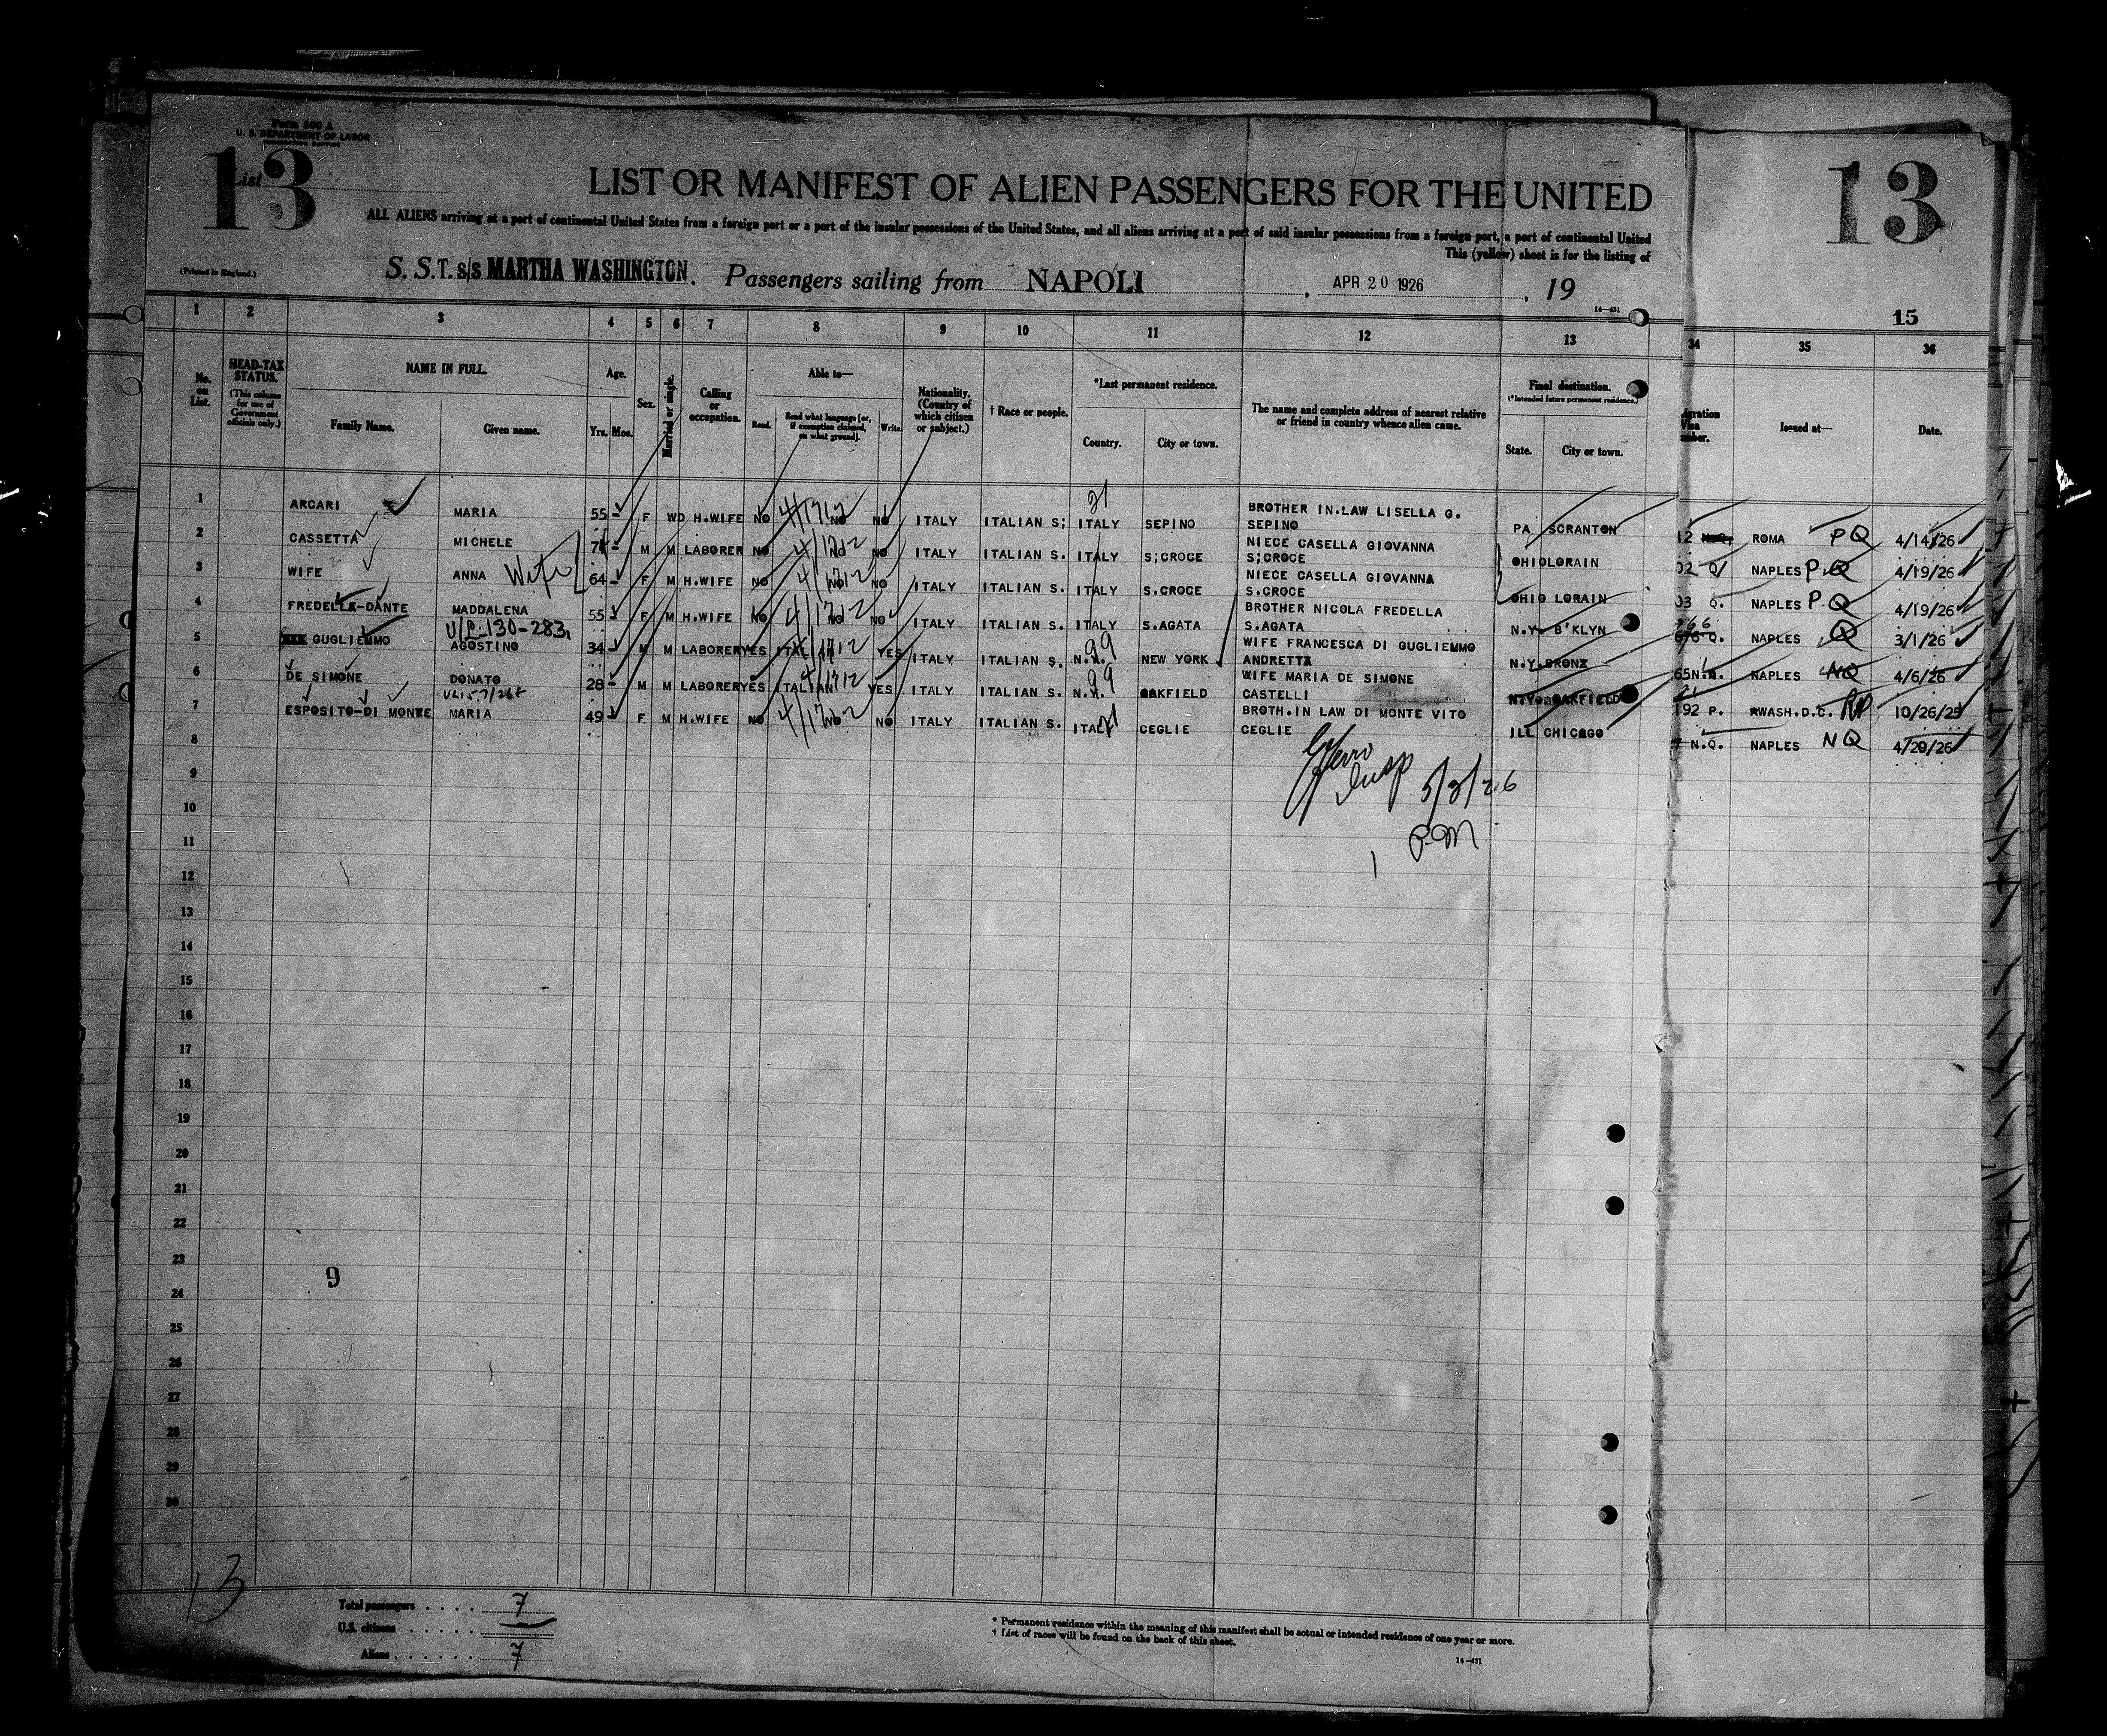 Form 500 A
U. S. DEPARTMENT OF LABOR
List
13
13
LIST OR MANIFEST OF ALIEN PASSENGERS FOR THE UNITED
ALL ALIENS arriving at a port of continental United States from a foreign port or a port of the insular possessions of the United States, and all aliens arriving at a port of said insular possessions from a foreign port, a port of continental United
This (yellow) sheet is for the listing of
(Printed in England.)
S. S. T. s/s MARTHA WASHINGTON. Passengers sailing from NAPOLI, APR 20 1926, 19
14-431
15
1 2 3 4 5 6 7 8 9 10 11 12 13 34 35 36
No. on List.
HEAD-TAX STATUS.
(This column for use of Government officials only.)
NAME IN FULL.
Family Name. Given name.
Age.
Yrs. Mos.
Sex.
Married or single.
Calling or occupation.
Able to—
Read. Read what language [or, if exemption claimed, on what ground]. Write.
Nationality. (Country of which citizen or subject.)
† Race or people.
*Last permanent residence.
Country. City or town.
The name and complete address of nearest relative or friend in country whence alien came.
Final destination.
(*Intended future permanent residence.)
State. City or town.
Issued at—
Date.
1 ARCARI MARIA 55 - F WD H.WIFE NO 4/1712 NO NO ITALY ITALIAN S; ITALY 21 SEPINO BROTHER IN.LAW LISELLA G. SEPINO PA SCRANTON 12 ROMA PQ 4/14/26
2 CASSETTA MICHELE 71 - M M LABORER NO 4/1712 NO NO ITALY ITALIAN S. ITALY S;CROCE NIECE CASELLA GIOVANNA S;CROCE OHIO LORAIN 02 Q NAPLES P.Q 4/19/26
3 WIFE ANNA Wife 64 - F M H.WIFE NO 4/1712 NO NO ITALY ITALIAN S. ITALY S.CROCE NIECE CASELLA GIOVANNA S.CROCE OHIO LORAIN 03 Q. NAPLES P.Q 4/19/26
4 FREDELLA-DANTE MADDALENA 55 - F M H.WIFE NO 4/1712 NO NO ITALY ITALIAN S. ITALY S.AGATA BROTHER NICOLA FREDELLA S.AGATA N.Y. B'KLYN Q. NAPLES Q 3/1/26
V/P-130-283,
5 GUGLIEMMO AGOSTINO 34 - M M LABORER YES 4/1712 YES ITALY ITALIAN S. N.Y. 99 NEW YORK WIFE FRANCESCA DI GUGLIEMMO ANDRETTA N.Y. BRONX 65 NAPLES NQ 4/6/26
6 DE SIMONE DONATO 28 - M M LABORER YES ITALIAN 4/1712 YES ITALY ITALIAN S. N.Y. 99 OAKFIELD WIFE MARIA DE SIMONE CASTELLI N.Y. OAKFIELD 192 P. WASH.D.C. RP 10/26/25
7 ESPOSITO-DI MONTE MARIA 49 - F M H.WIFE NO 4/1712 NO NO ITALY ITALIAN S. ITALY 21 CEGLIE BROTH.IN LAW DI MONTE VITO CEGLIE ILL CHICAGO N.Q. NAPLES NQ 4/20/26
8
Insp 5/3/26
9
10
PM
11
12
13
14
15
16
17
18
19
20
21
22
23
9
24
25
26
27
28
29
30
13
Total passengers . . . . 7
U.S. citizens . . . . . .
Aliens . . . . . . . 7
* Permanent residence within the meaning of this manifest shall be actual or intended residence of one year or more.
† List of races will be found on the back of this sheet.
14-431